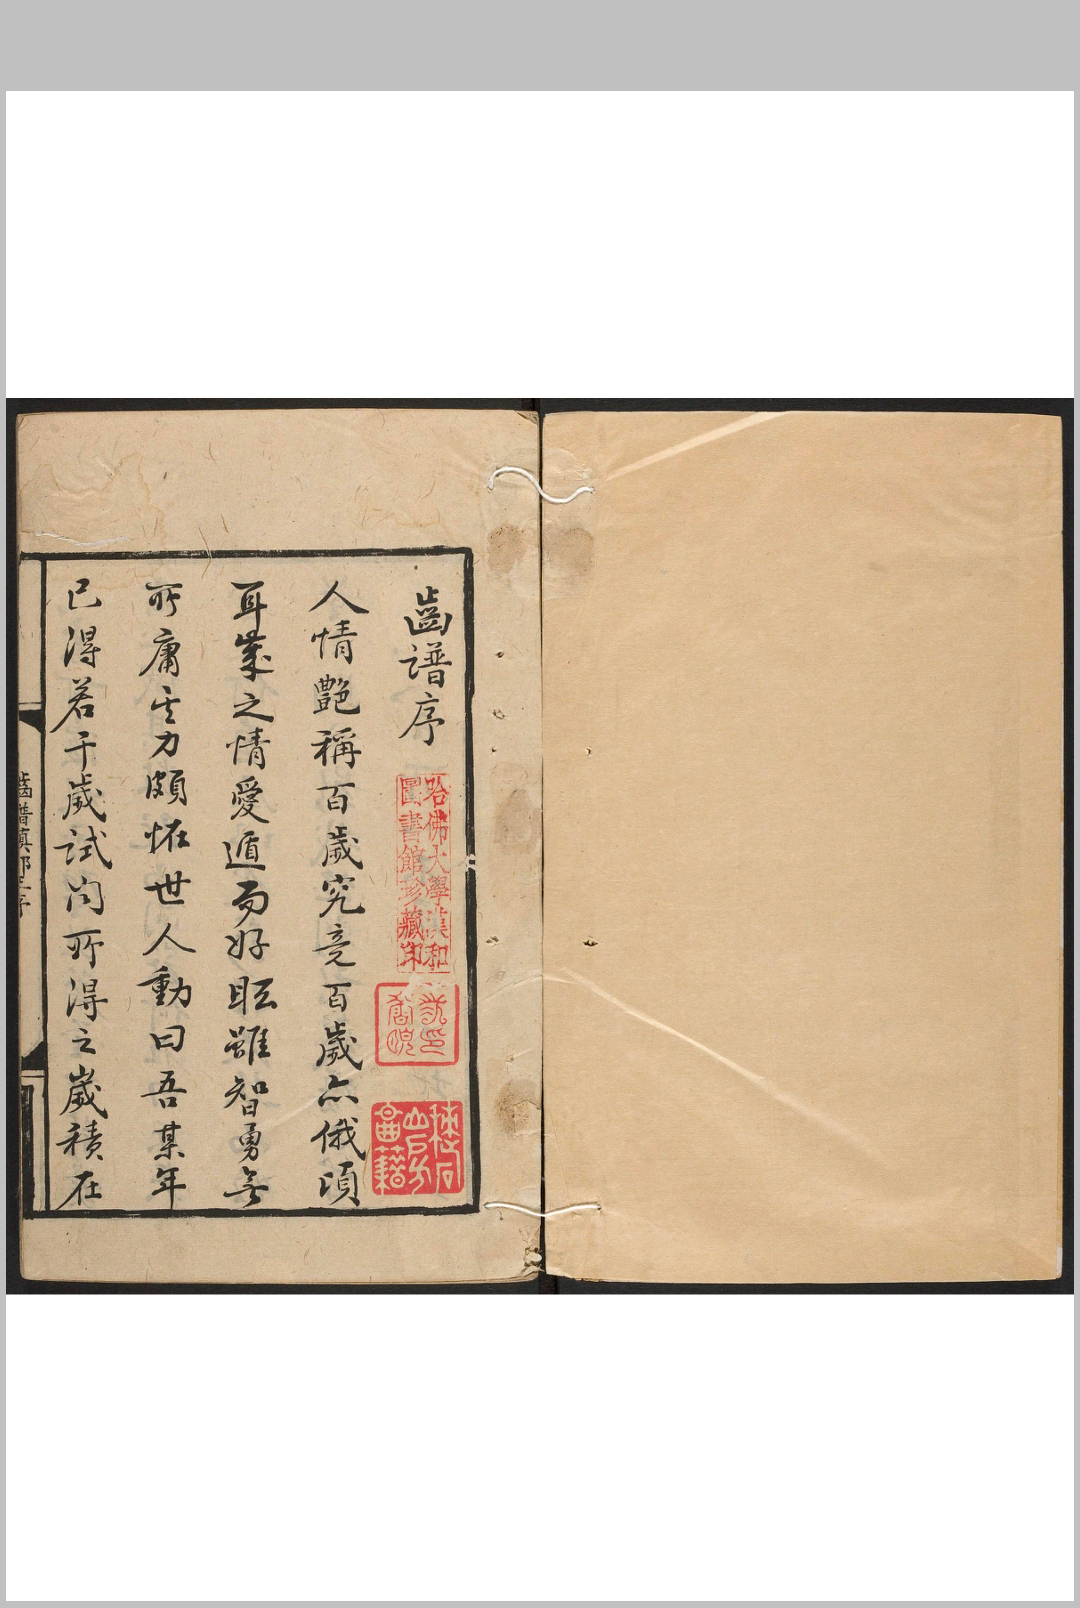 齒譜序
人情艷稱百歲究竟百歲亦俄頃
耳
之情愛遁而好
雖智勇無
所庸其力頗怪世人動曰吾某年
已得若干歲試問所得之歲積在
哈佛大學漢和
圖書館珍藏印